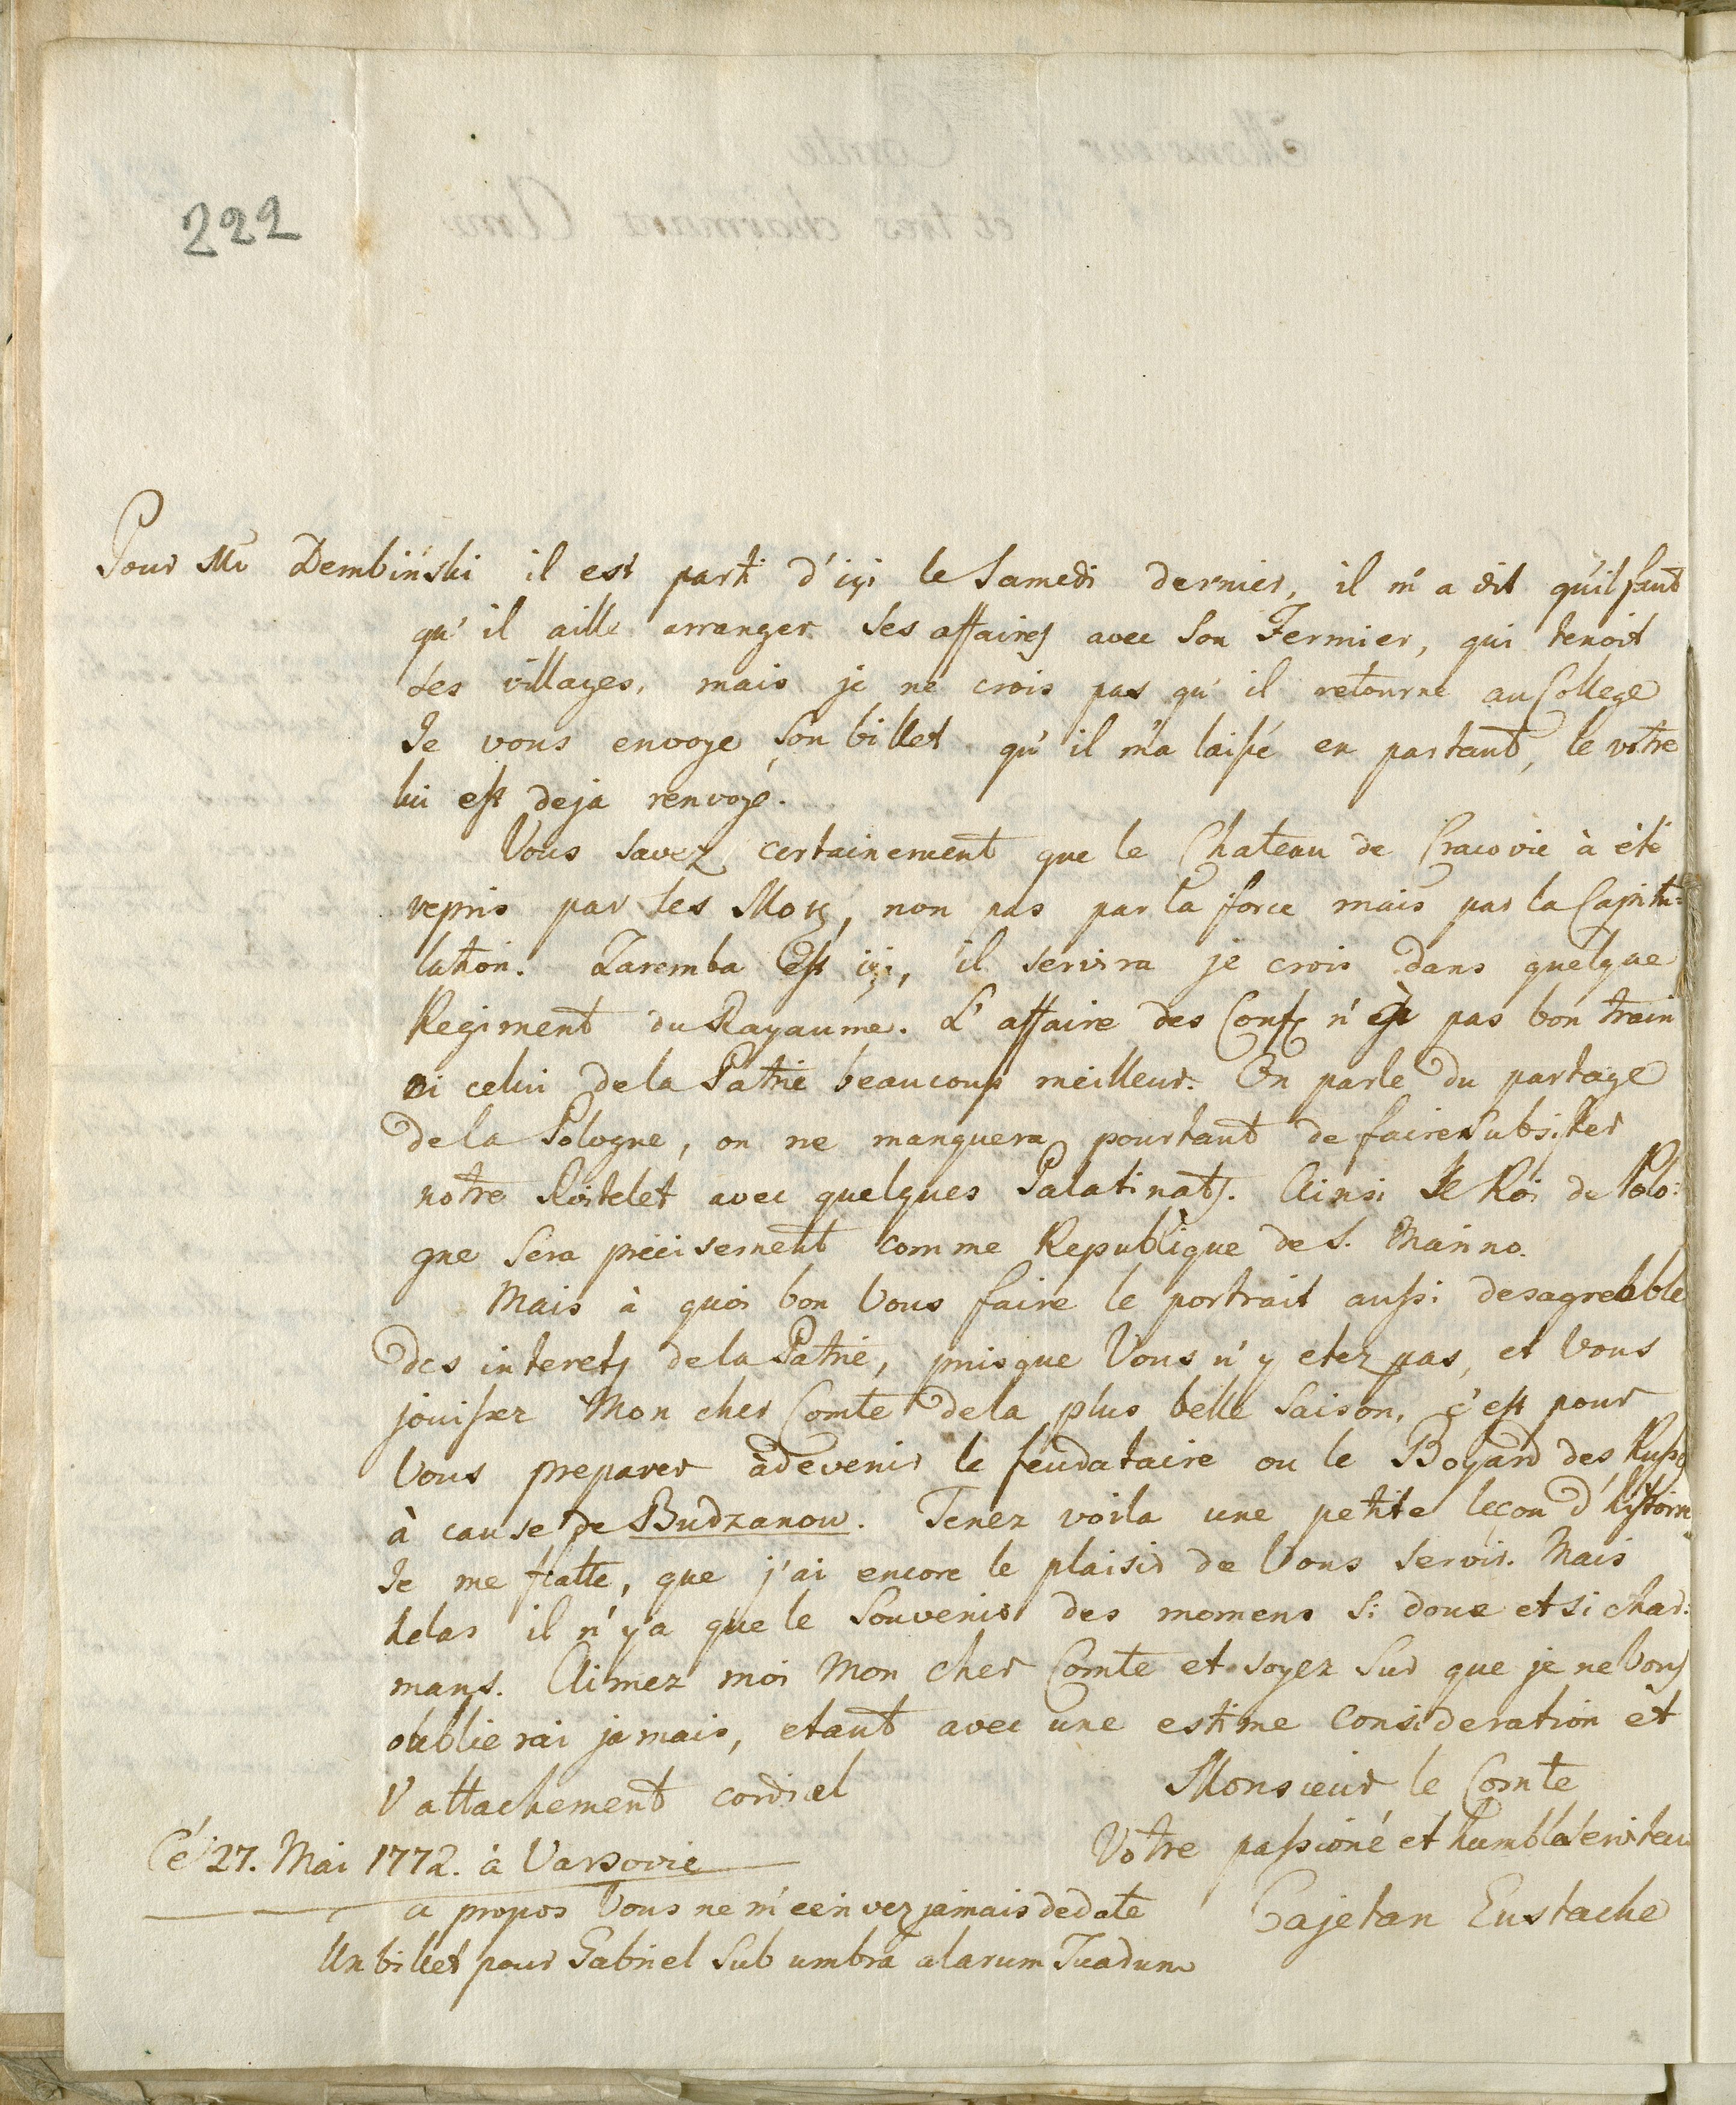 222
Pour Mr Dembiński il est parti d'içi le Samedi dernier, il m'a dit qu'il faut
qu'il aille arranger ses affaires avec Son Fermier, qui tenoit
ses villages, mais je ne crois pas qu'il retourne au College
Je vous envoye Son billet qu'il m'a laissé en partant, le vôtre
lui est deja renvoyé.
Vous savez certainement que le Chateau de Cracovie à été
repris par les Mosq, non pas par la force mais par la Capitu=
lation. Zaremba Est içi, il servira je crois dans quelque
Regiment du Rayaume. L'affaire des Conf n'est pas bon train
ni celui de la Patrie beaucoup meilleur. On parle du partage
de la Pologne, on ne manquera pourtant de faire subsister
notre Roitelet avec quelques Palatinats. Ainsi le Roi de Polo=
gne Sera précisement comme Republique de S. Marino.
Mais à quoi bon Vous faire le portrait aussi desagreable
des interets de la Patrie, puisque Vous n'y etez pas, et Vous
jouissez Mon cher Comte de la plus belle Saison, c'est pour
Vous preparer à devenir le feudataire ou le Boyard des Russes
à cause de Budzanow. Tenez voila une petite leçon d'histoire
Je me flatte, que j'ai encore le plaisir de Vous servir. Mais
helas il n'y a que le Souvenir des momens si doux et si char=
mans. Aimez moi Mon cher Comte et soyez Sur que je ne Vous
oublierai jamais, etant avec une estime Consideration et
l'attachement cordiel
Monsieur le Comte
Votre passioné et humble Serviteur
Cajetan Eustache
Cé 27. Mai 1772. à Varsovie
a propos Vous ne m'ecrivez jamais de date
Un billet pour Gabriel Sub umbra alarum Tuarum